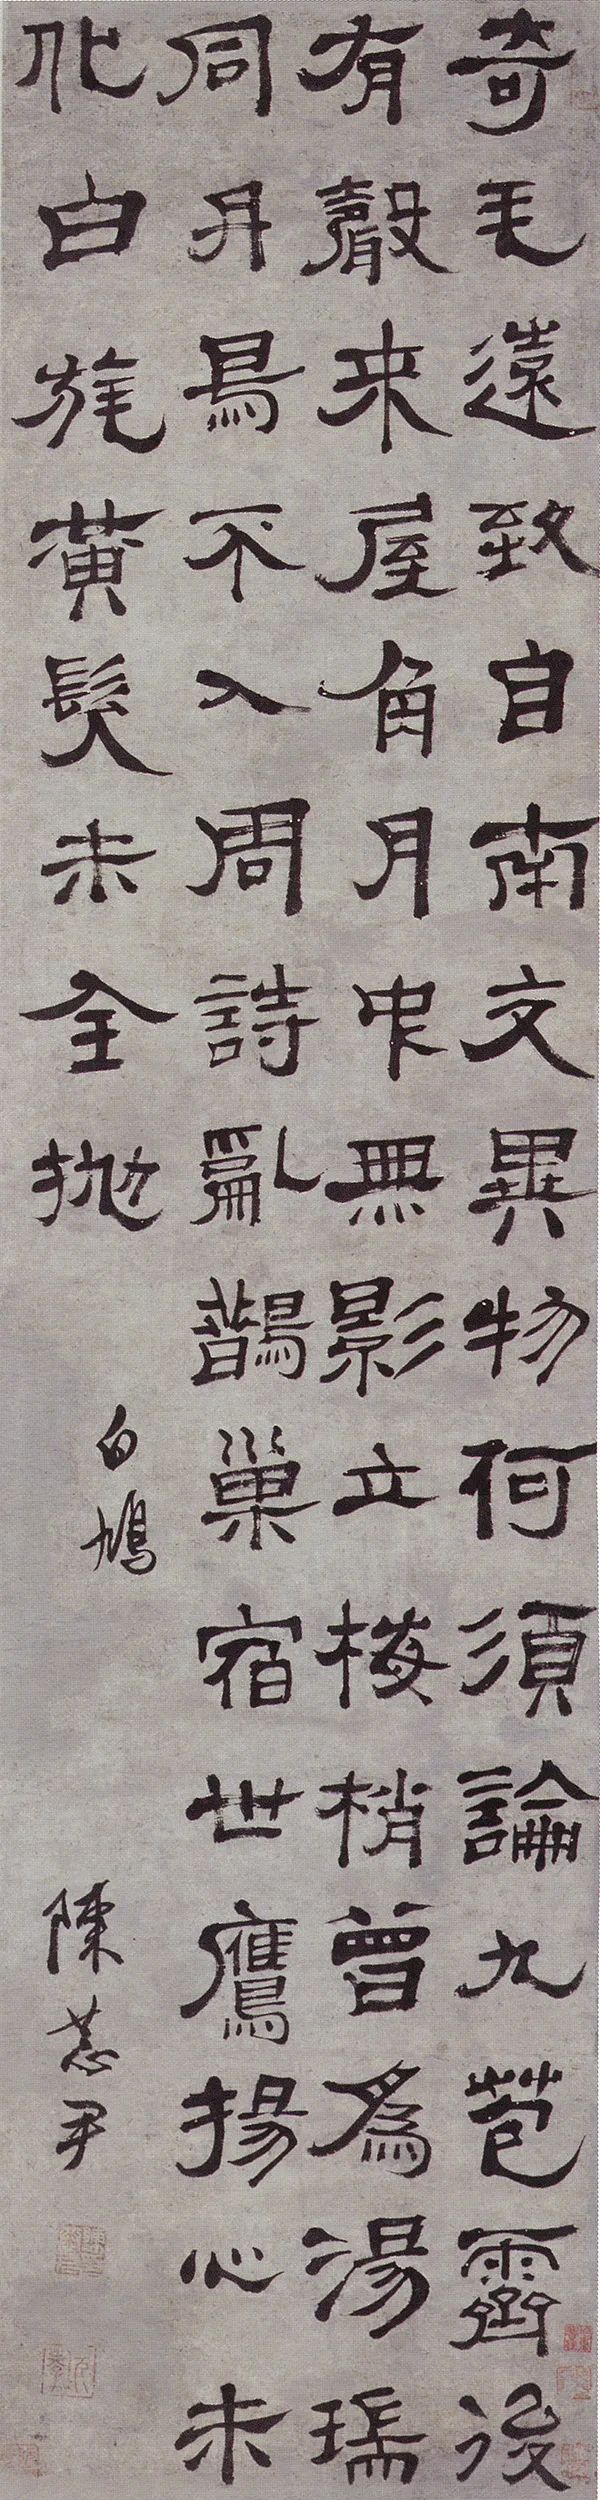 奇毛遠致自南交異物何須論九苞霽後
有聲來屋角月中無影立梅梢曾爲湯瑞
同丹烏不入周詩亂鵲巢宿世鷹揚心未
化白旄黃髮未全拋
白鳩
陳恭尹